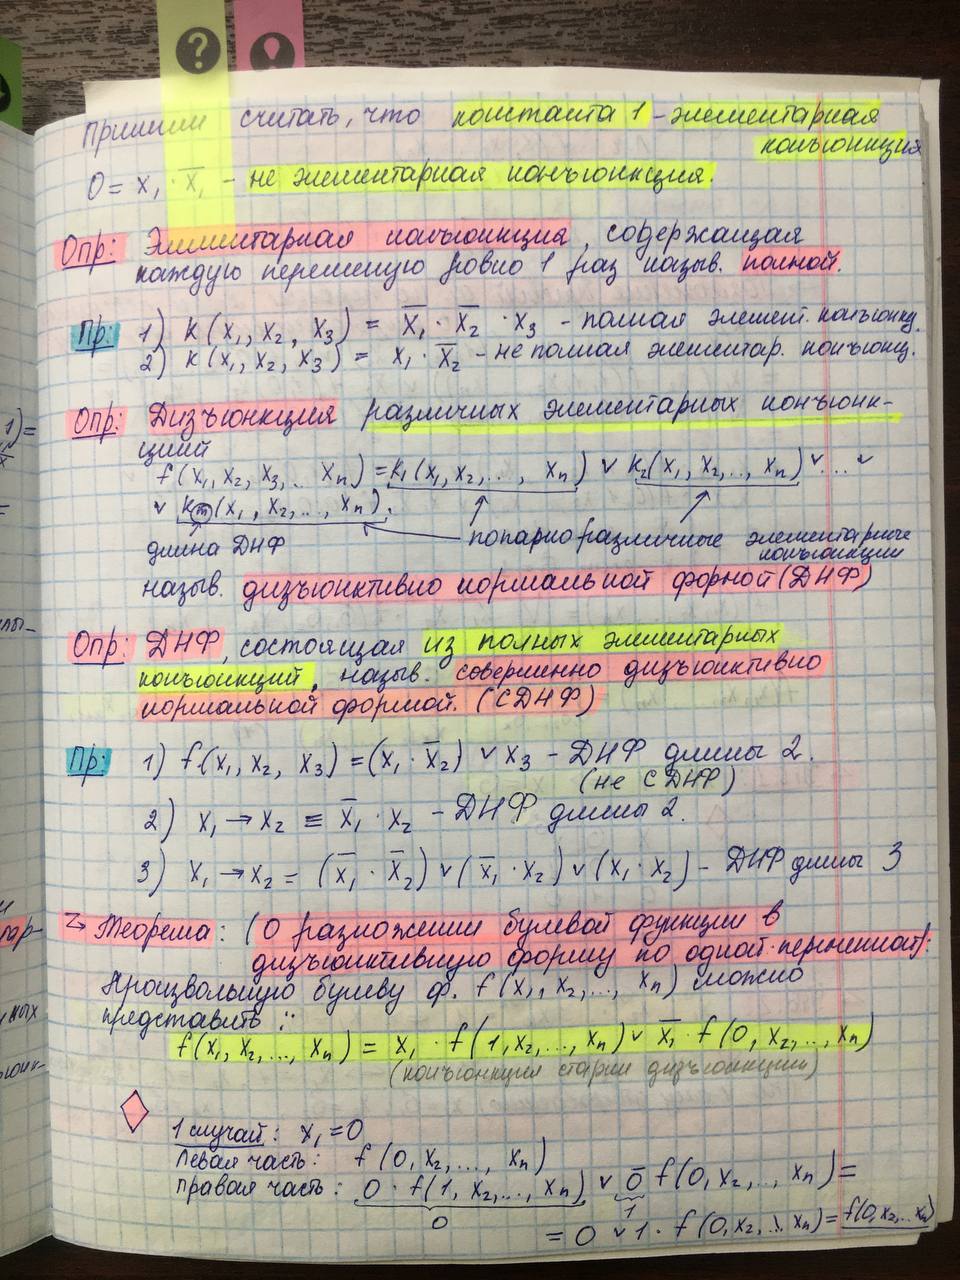 Примем считать, что константа 1 - элементарная
конъюнкция
0 = x₁ · x̅₁ - не элементарная конъюнкция.
Опр: Элементарная конъюнкция, содержащая
каждую переменную ровно 1 раз назыв. полной.
Пр: 1) K(x₁, x₂, x₃) = x̅₁ · x̅₂ · x₃ - полная элемент. конъюнкц.
2) K(x₁, x₂, x₃) = x₁ · x̅₂ - не полная элементар. конъюнкц.
Опр: Дизъюнкция различных элементарных конъюнк-
ций
f(x₁, x₂, x₃, .. xₙ) = K₁(x₁, x₂, ..., xₙ) ∨ K₂(x₁, x₂, ..., xₙ) ∨ ... ∨
∨ Kₘ(x₁, x₂, ..., xₙ).
длина ДНФ
попарно различные элементарные
конъюнкции
назыв. дизъюнктивно нормальной формой (ДНФ)
Опр: ДНФ, состоящая из полных элементарных
конъюнкций, назыв. совершенно дизъюнктивно
нормальной формой. (СДНФ)
Пр: 1) f(x₁, x₂, x₃) = (x₁ · x̅₂) ∨ x₃ - ДНФ длины 2.
(не СДНФ)
2) x₁ → x₂ ≡ x̅₁ · x₂ - ДНФ длины 2.
3) x₁ → x₂ = (x̅₁ · x̅₂) ∨ (x̅₁ · x₂) ∨ (x₁ · x₂) - ДНФ длины 3
Теорема: (О разложении булевой функции в
дизъюнктивную форму по одной переменной):
Произвольную булеву ф. f(x₁, x₂, ..., xₙ) можно
представить :
f(x₁, x₂, ..., xₙ) = x₁ · f(1, x₂, ..., xₙ) ∨ x̅₁ · f(0, x₂, ..., xₙ)
(конъюнкция старше дизъюнкции)
1 случай: x₁ = 0
левая часть: f(0, x₂, ..., xₙ)
правая часть: 0 · f(1, x₂, ..., xₙ) ∨ 0̅ f(0, x₂, ..., xₙ) =
0 1
= 0 ∨ 1 · f(0, x₂, ... xₙ) = f(0, x₂, ... xₙ)